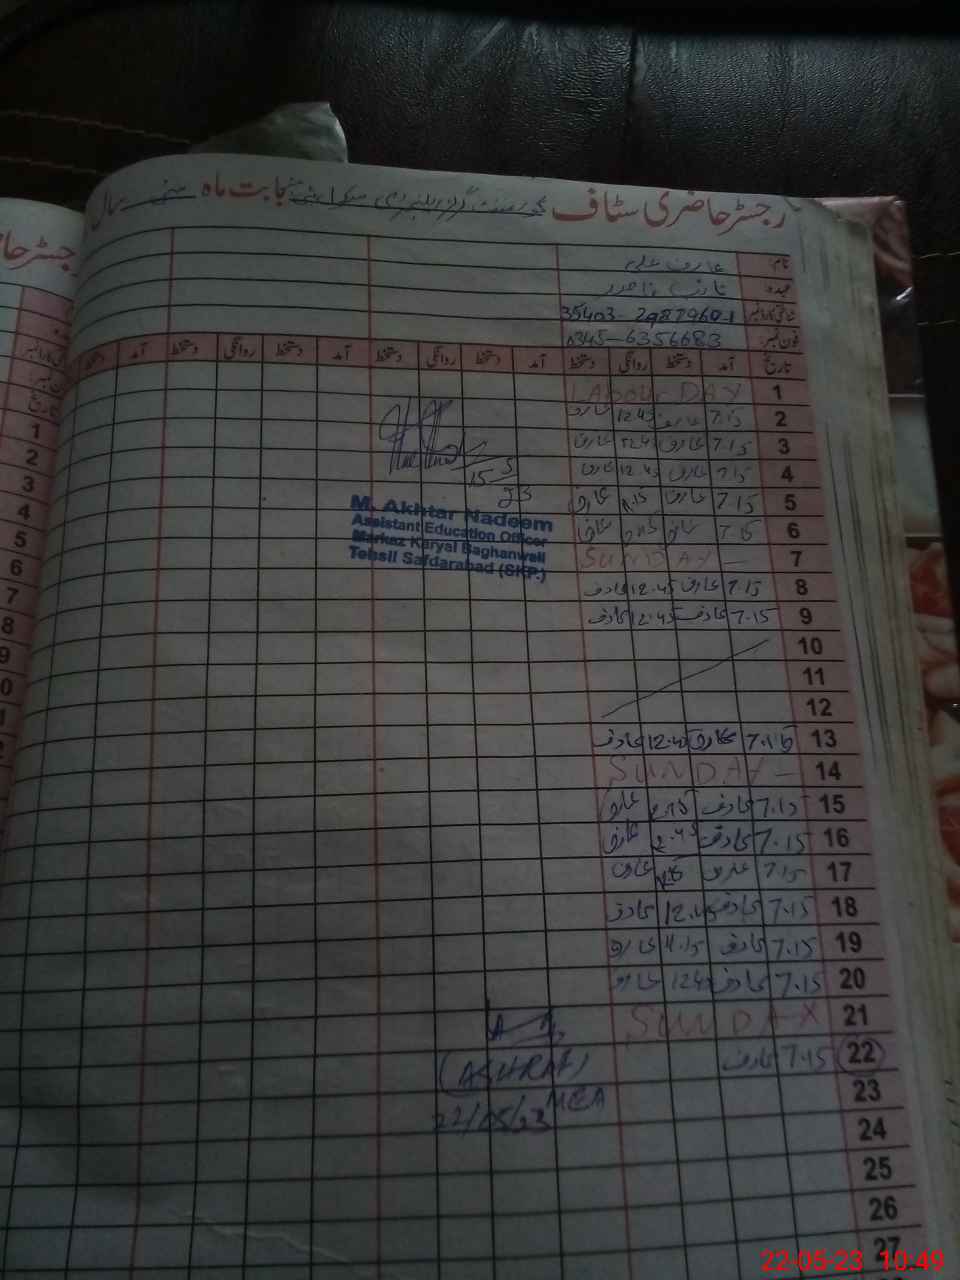 رجسٹر حاضری سٹاف گورنمنٹ گرلز بابت ماہ مئی سال
نام: عارف علی
عہدہ نائب قاصد
شناختی کارڈ نمبر 35403-
فون نمبر: 0345-6356683
تاریخ آمد دستخط روانگی دستخط آمد دستخط روانگی دستخط آمد دستخط روانگی دستخط
1 LABOUR DAY
2 7.15 عارف 12.45 عارف
3 7.15 عارف 12.45 عارف
4 7.15 عارف 12.45 عارف
5 7.15 عارف 11.15 عارف
6 7.15 عارف عارف
7 SUNDAY -
8 7.15 عارف 12.45 عارف
9 7.15 عارف 12.45 عارف
10
11
12
13 7.15 عارف 12.45 عارف
14 SUNDAY -
15 7.15 عارف عارف
16 7.15 عارف 12.45 عارف
17 7.15 عارف عارف
18 7.15 عارف 12.45 عارف
19 7.15 عارف 11.15 عارف
20 7.15 عارف 1245 عارف
21 SUNDAY
22 7.15 عارف
23
24
25
26
27
15 5
23
M. Akhtar Nadeem
Assistant Education Officer
Markaz Karyal Baghanwali
Tehsil Safdarabad (SKP.)
(ASHRAF)
MEA
22/05/23
رجسٹر حا
تاریخ
1
2
3
4
5
6
7
8
9
0
1
2
22-05-23 10:49